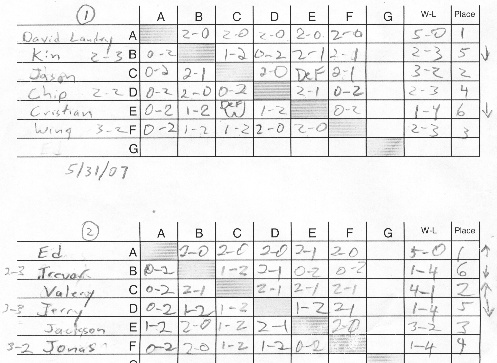 1
A B C D E F G W-L Place
David Landry A 2-0 2-0 2-0 2-0 2-0 5-0 1
Kin 2-3 B 0-2 1-2 0-2 2-1 2-1 2-3 5 ↓
Jason C 0-2 2-1 2-0 DEF 2-1 3-2 2
Chip 2-2 D 0-2 2-0 0-2 2-1 0-2 2-3 4
Cristian E 0-2 1-2 DEF 1-2 0-2 1-4 6 ↓
Wing 3-2 F 0-2 1-2 1-2 2-0 2-0 2-3 3
G
5/31/07
2
A B C D E F G W-L Place
Ed A 2-0 2-0 2-0 2-1 2-0 5-0 1 ↑
2-3 Trevor B 0-2 1-2 2-1 0-2 0-2 1-4 6 ↓
Valery C 0-2 2-1 2-1 2-1 2-1 4-1 2 ↑
2-3 Jerry D 0-2 1-2 1-2 1-2 2-1 1-4 5 ↓
Jackson E 1-2 2-0 1-2 2-1 2-0 3-2 3
3-2 Jonas F 0-2 2-0 1-2 1-2 0-2 1-4 4
G